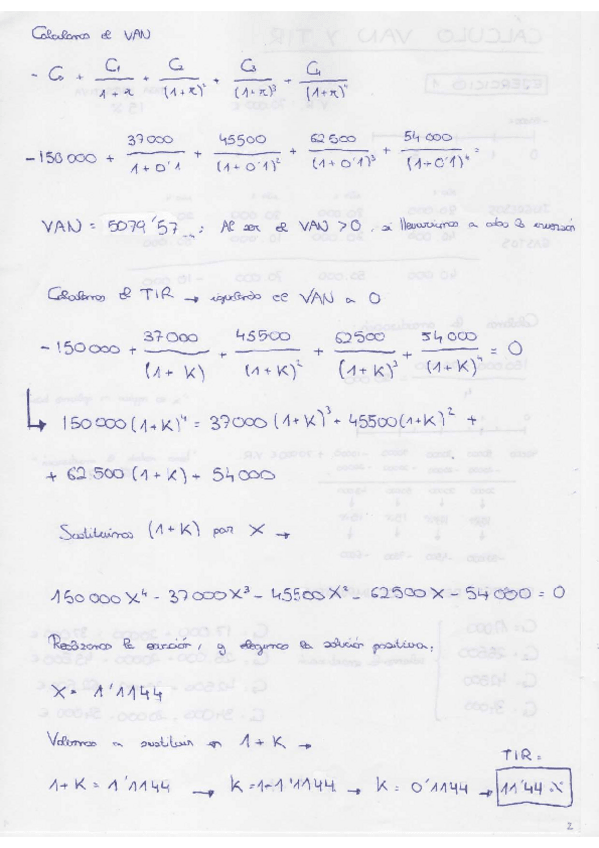 Calculamos el VAN
- C0 + C1/(1+r) + C2/(1+r)² + C3/(1+r)³ + C4/(1+r)⁴
-150000 + 37000/(1+0'1) + 45500/(1+0'1)² + 62500/(1+0'1)³ + 54000/(1+0'1)⁴ =
VAN = 5079'57... ; Al ser el VAN >0, si llevaríamos a cabo la inversión
Calculamos el TIR → igualando el VAN a 0
-150000 + 37000/(1+K) + 45500/(1+K)² + 62500/(1+K)³ + 54000/(1+K)⁴ = 0
150000(1+K)⁴ = 37000(1+K)³ + 45500(1+K)² +
+ 62.500(1+K) + 54000
Sustituimos (1+K) por X →
150000X⁴ - 37000X³ - 45500X² - 62500X - 54000 = 0
Realizamos la ecuación, y elegimos la solución positiva:
X = 1'1144
Volvemos a sustituir en 1+K →
TIR =
1+K = 1'1144 → K=1-1'1144 → K= 0'1144 → 11'44%
2